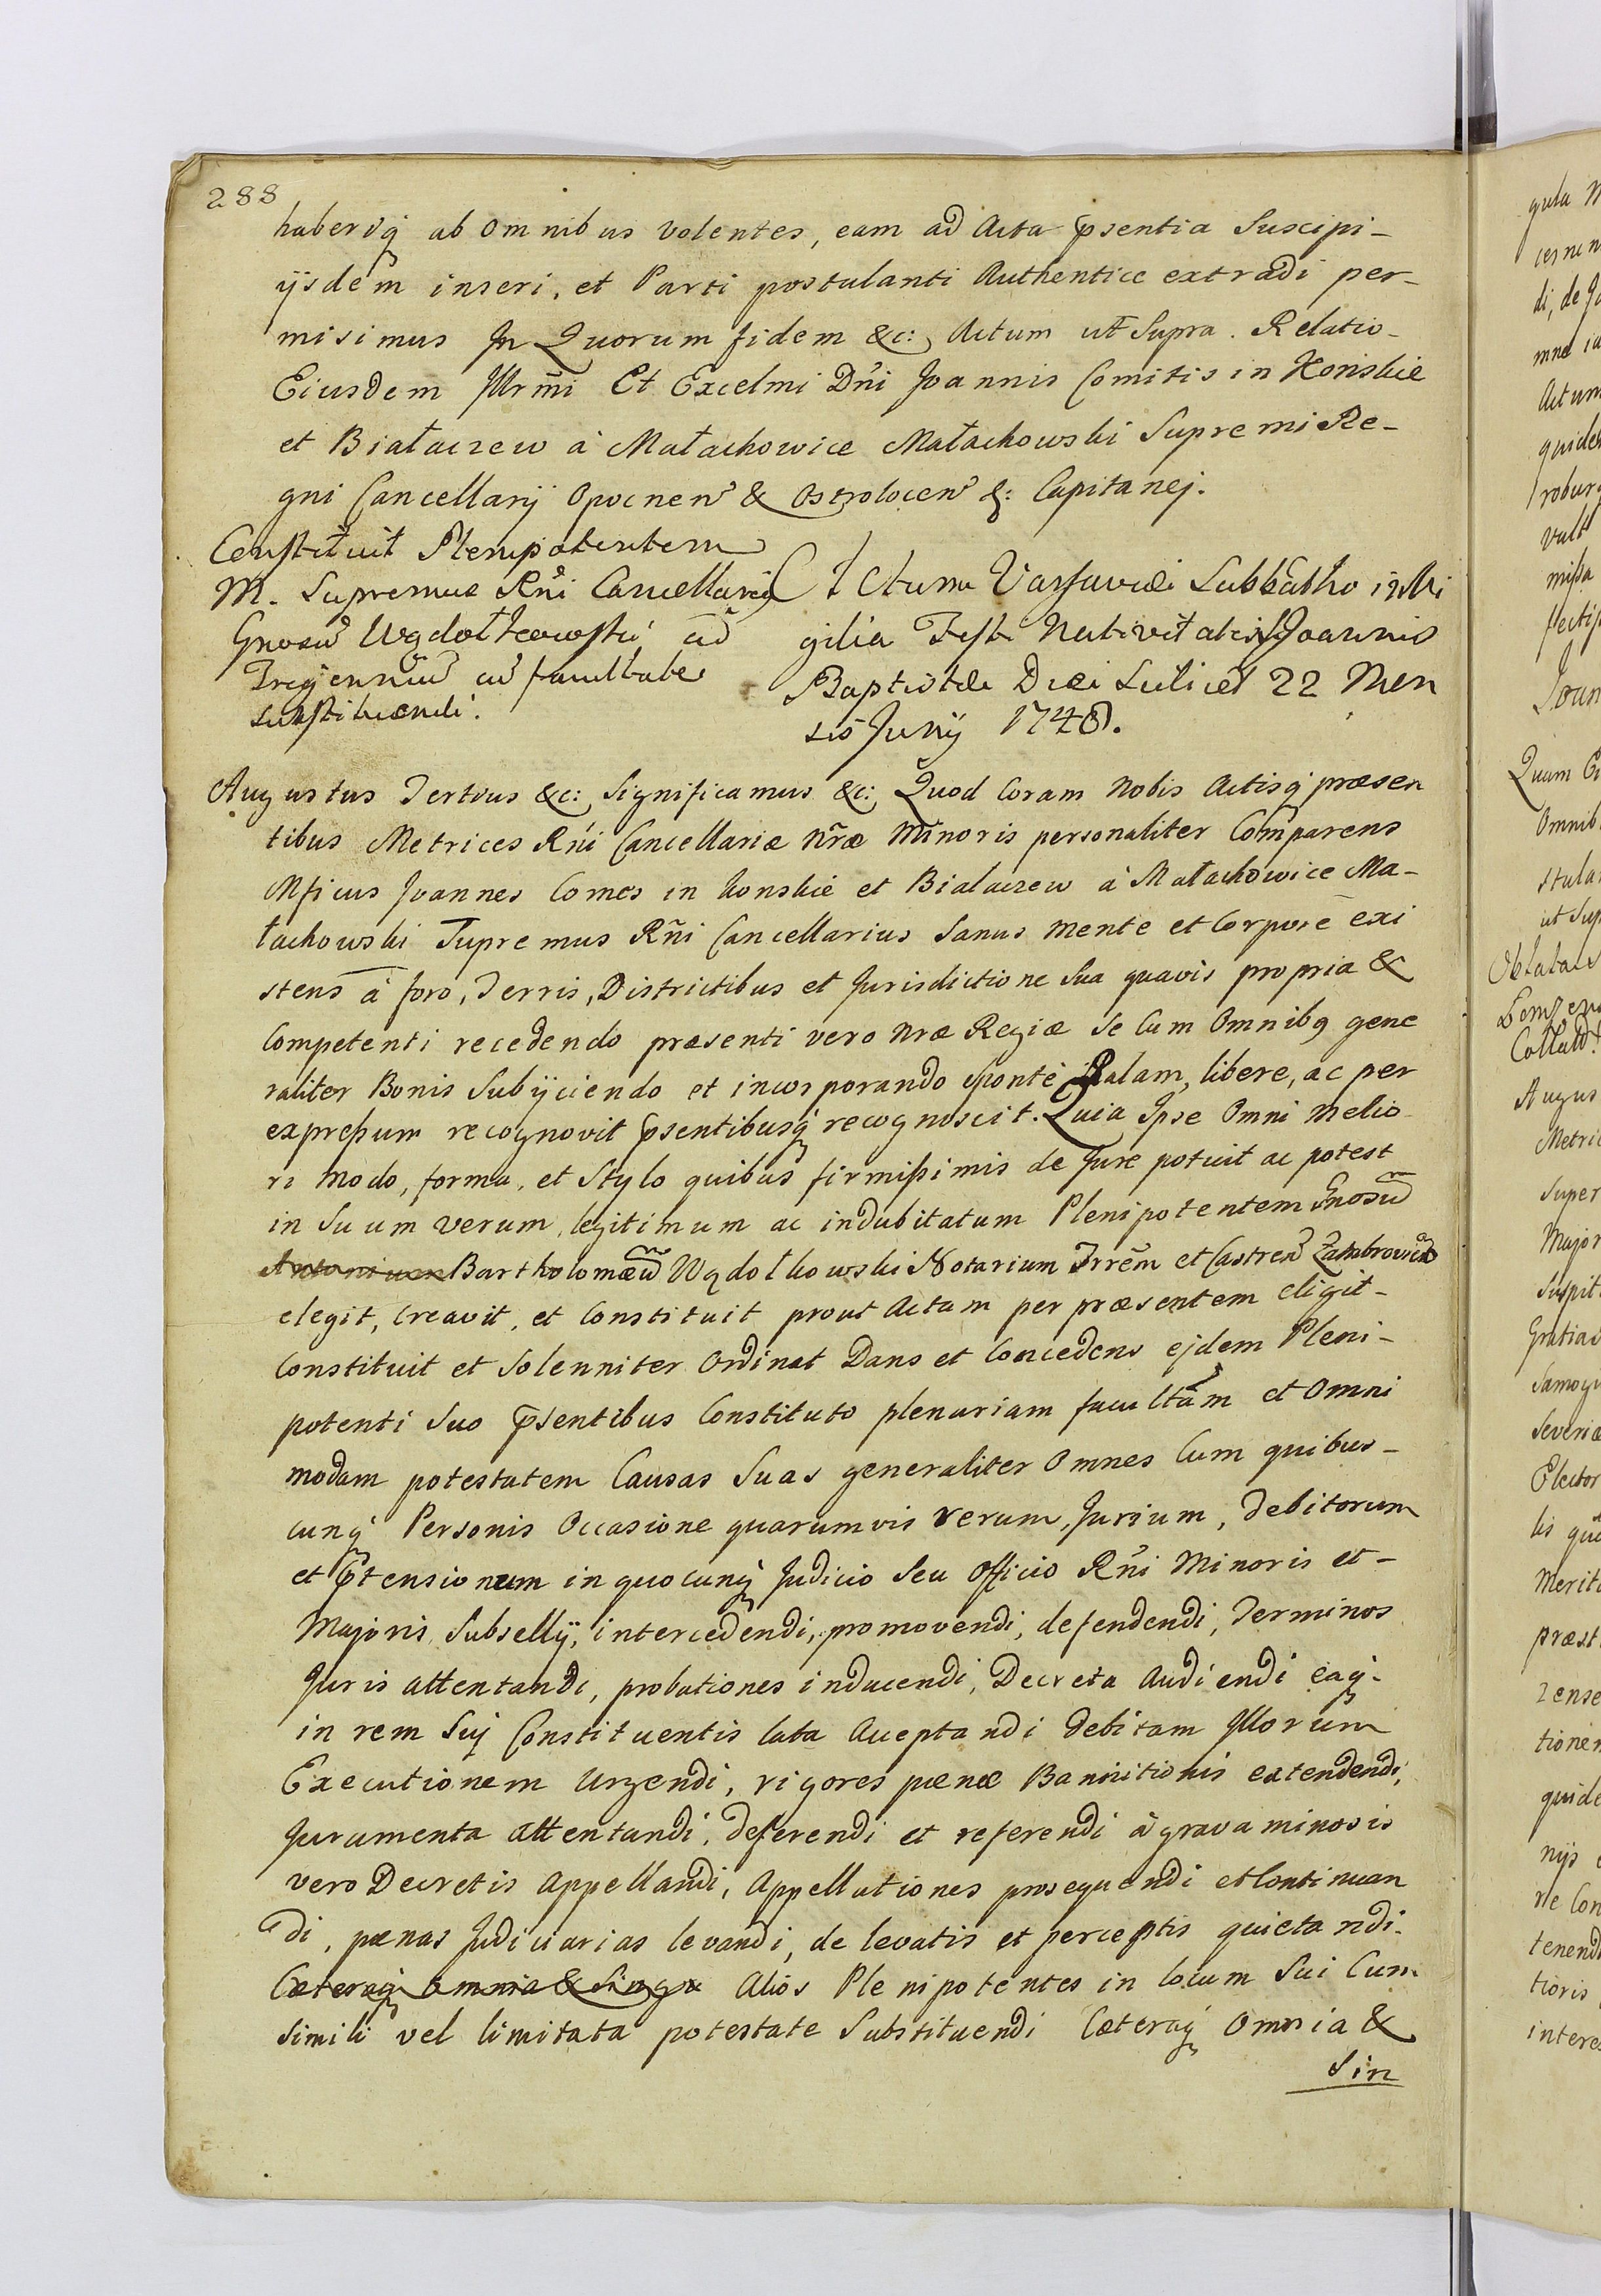 288
haberiq ab Omnibus volentes, eam ad Acta pr̃sentia Suscipi-
ijsdem inseri, et Parti postulanti Authentice extradi per-
misimus In Quorum fidem &c: Actum ut Supra. Relatio-
Eiusdem Illrm̃i Et Excelmi Dñi Joannis Comitis in Konskie
et Białaczew à Małachowice Małachowski Supremi Re-
gni Cancellarij Opocnen̄ & Ostrolocen̄ &: Capitanej.
Constituit Plenipotentem
M. Supremus Rñi Cancellarius
Gnosum̄ Wądołkowski ad
cum facultate
substituendi.
Actum Varsaviæ Sabbatho in Vi
gilia Festi Nativitatis S. Joannis
Baptistæ Diei Scilicet 22 Men
sis Junij 1748.
Augustus Tertius &c: Significamus &c: Quod Coram Nobis Actisq præsen
tibus Metrices Rñi Cancellariæ Nr̃æ Minoris personaliter Comparens
Mficus Joannes Comes in Konskie et Bialaczew à Małachowice Ma-
łachowski Supremus Rñi Cancellarius Sanus mente et Corpore exi
stens à foro, Terris, Districtibus et Jurisdictione Sua quavis propria &
Competenti recedendo præsenti vero Nræ Regiæ Se Cum Omnibq gene
raliter Bonis Subijciendo et incorporando sponte Palam, libere, ac per
expressum recognovit pr̃sentibusq recognoscit. Quia Ipse Omni Melio
ri Modo, forma, et Stylo quibus firmissimis de Jure potuit ac potest
in Suum verum legitimum ac indubitatum Plenipotentem Gnosum̄
Antonium Bartholomæum̄ Wądołkowski Notarium Trrēm et Castren̄ Zambrovien̄
elegit, Creavit, et Constituit prout Actum per præsentem eligit-
Constituit et Solenniter Ordinat Dans et Concedens ejdem Pleni-
potenti Suo pr̃sentibus Constituto plenariam facultãm et Omni
modam potestatem Causas Suas generaliter Omnes Cum quibus-
cunq Personis Occasione quarumvis rerum, Jurium, debitorum
et Pr̃tensionum in quocunq Judicio Seu Officio Rñi Minoris et-
Majoris Subsellij, intercedendi, promovendi, defendendi, Terminos
Juris attentandi, probationes inducendi, Decreta Audiendi eaq-
in rem Suj Constituentis lata Acceptandi debitam Illorum
Executionem Urgendi, rigores pœnæ Bannitionis extendendi,
Juramenta attentandi, deferendi et referendi à gravaminosis
vero Decretis Appellandi, Appellationes prosequendi et Continuan
di, pœnas Judiciarias levandi, de levatis et perceptis quietandi-
Cæteraq Omnia & Singu Alios Plenipotentes in locum Sui Cum
Simili vel limitata potestate Substituendi Cæteraq Omnia &
Sin